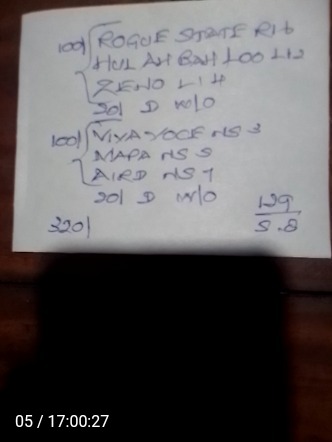 100/ ROGUE STATE R16
HUL AH BAH LOO L12
ZENO L14
20/ D W/O
100/ VIYA YOGE NS 3
MAPA NS 5
AIRD NS 7
20/ D W/O
320/
129
S.B
05 / 17:00:27